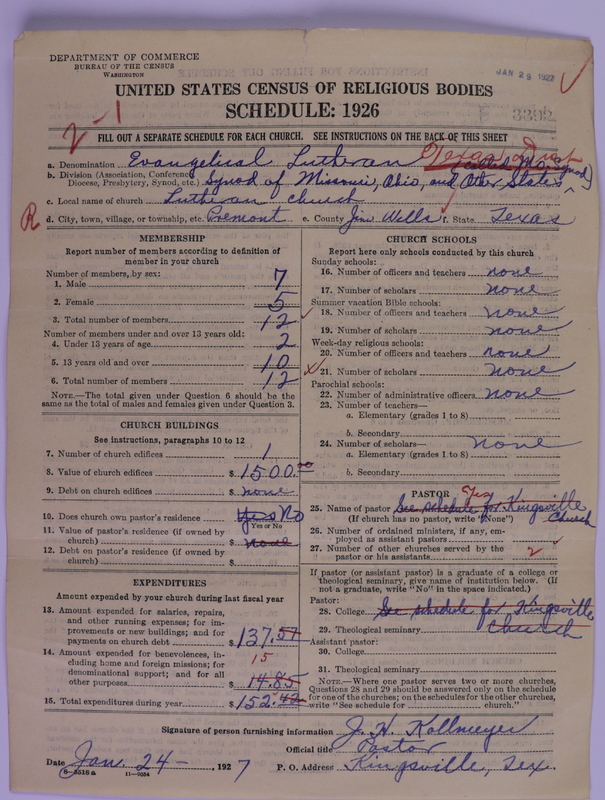 DEPARTMENT OF COMMERCE
BUREAU OF THE CENSUS
WASHINGTON
JAN 29 1927
UNITED STATES CENSUS OF RELIGIOUS BODIES
SCHEDULE: 1926
3392
2-1
FILL OUT A SEPARATE SCHEDULE FOR EACH CHURCH. SEE INSTRUCTIONS ON THE BACK OF THIS SHEET
a. Denomination Evangelical Lutheran Texas Dist (Mo. Synod)
b. Division (Association, Conference, Diocese, Presbytery, Synod, etc.) Synod of Missouri, Ohio, and Other States
c. Local name of church Lutheran Church
R
d. City, town, village, or township, etc. Premont e. County Jim Wells f. State Texas
MEMBERSHIP
Report number of members according to definition of
member in your church
Number of members, by sex:
1. Male 7
2. Female 5
3. Total number of members 12
Number of members under and over 13 years old:
4. Under 13 years of age 2
5. 13 years old and over 10
6. Total number of members 12
NOTE.—The total given under Question 6 should be the
same as the total of males and females given under Question 3.
CHURCH BUILDINGS
See instructions, paragraphs 10 to 12
7. Number of church edifices 1
8. Value of church edifices $1500.00
9. Debt on church edifices $ none
10. Does church own pastor's residence Yes No
Yes or No
11. Value of pastor's residence (if owned by
church) $ none
12. Debt on pastor's residence (if owned by
church) $
EXPENDITURES
Amount expended by your church during last fiscal year
13. Amount expended for salaries, repairs,
and other running expenses; for im-
provements or new buildings; and for
payments on church debt $137.57
14. Amount expended for benevolences, in-
cluding home and foreign missions; for
denominational support; and for all
other purposes 15 14.85
15. Total expenditures during year $152.42
CHURCH SCHOOLS
Report here only schools conducted by this church
Sunday schools:
16. Number of officers and teachers none
17. Number of scholars none
Summer vacation Bible schools:
18. Number of officers and teachers none
19. Number of scholars none
Week-day religious schools:
20. Number of officers and teachers none
21. Number of scholars none
Parochial schools:
22. Number of administrative officers none
23. Number of teachers—
a. Elementary (grades 1 to 8)
b. Secondary
24. Number of scholars— none
a. Elementary (grades 1 to 8)
b. Secondary
PASTOR
Yes
25. Name of pastor See schedule for Kingsville
(If church has no pastor, write "None") Church
26. Number of ordained ministers, if any, em-
ployed as assistant pastors
27. Number of other churches served by the
pastor or his assistants 2
If pastor (or assistant pastor) is a graduate of a college or
theological seminary, give name of institution below. (If
not a graduate, write "No" in the space indicated.)
Pastor:
28. College See schedule for Kingsville
29. Theological seminary Church
Assistant pastor:
30. College
31. Theological seminary
NOTE.—Where one pastor serves two or more churches,
Questions 28 and 29 should be answered only on the schedule
for one of the churches; on the schedules for the other churches,
write "See schedule for church."
Signature of person furnishing information J. H. Kollmeyer
Official title Pastor
Date Jan. 24 - , 1927 P. O. Address Kingsville, Tex.
8-5518a 11-9054